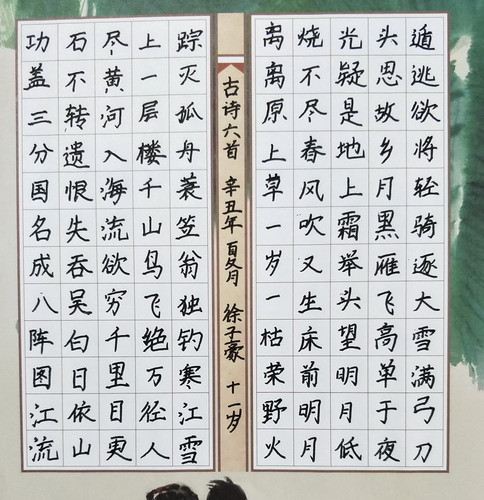 功盖三分国名成八阵图江流
石不转遗恨失吞吴白日依山
尽黄河入海流欲穷千里目更
上一层楼千山鸟飞绝万径人
踪灭孤舟蓑笠翁独钓寒江雪
古诗六首 辛丑年 夏月 徐子豪 十一岁
离离原上草一岁一枯荣野火
烧不尽春风吹又生床前明月
光疑是地上霜举头望明月低
头思故乡月黑雁飞高单于夜
遁逃欲将轻骑逐大雪满弓刀